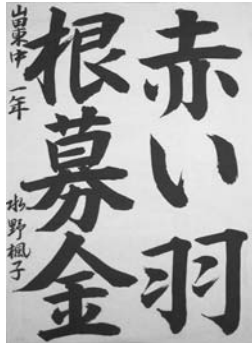 赤い羽
根募金
山田東中 一年 水野楓子